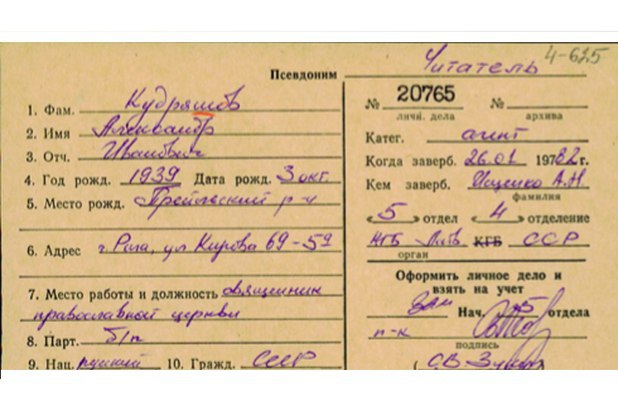 4-625
Псевдоним Читатель
1. Фам. Кудряшов
2. Имя Александр
3. Отч. Иванович
4. Год рожд. 1939 Дата рожд. 3 окт.
5. Место рожд. Прейльский р-н
6. Адрес г. Рига, ул Кирова 69-59
7. Место работы и должность священник
православной церкви
8. Парт. б/п
9. Нац. русский 10. Гражд. СССР
№ 20765 № 
личн. дела архива
Катег. агент
Когда заверб. 26.01 1982 г.
Кем заверб. Ищенко А.Н.
фамилия
«5» отдел «4» отделение
КГБ Латв КГБ ССР
орган
Оформить личное дело и
взять на учет
Зам Нач. 5 отдела
п-к
подпись